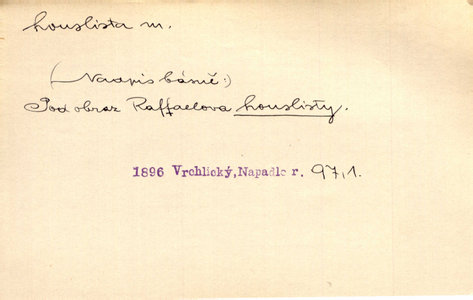 houslista m.
(Nadpis básně:)
Pod obraz Raffaelova houslisty.
1896 Vrchlický, Napadlo r. 97,1.